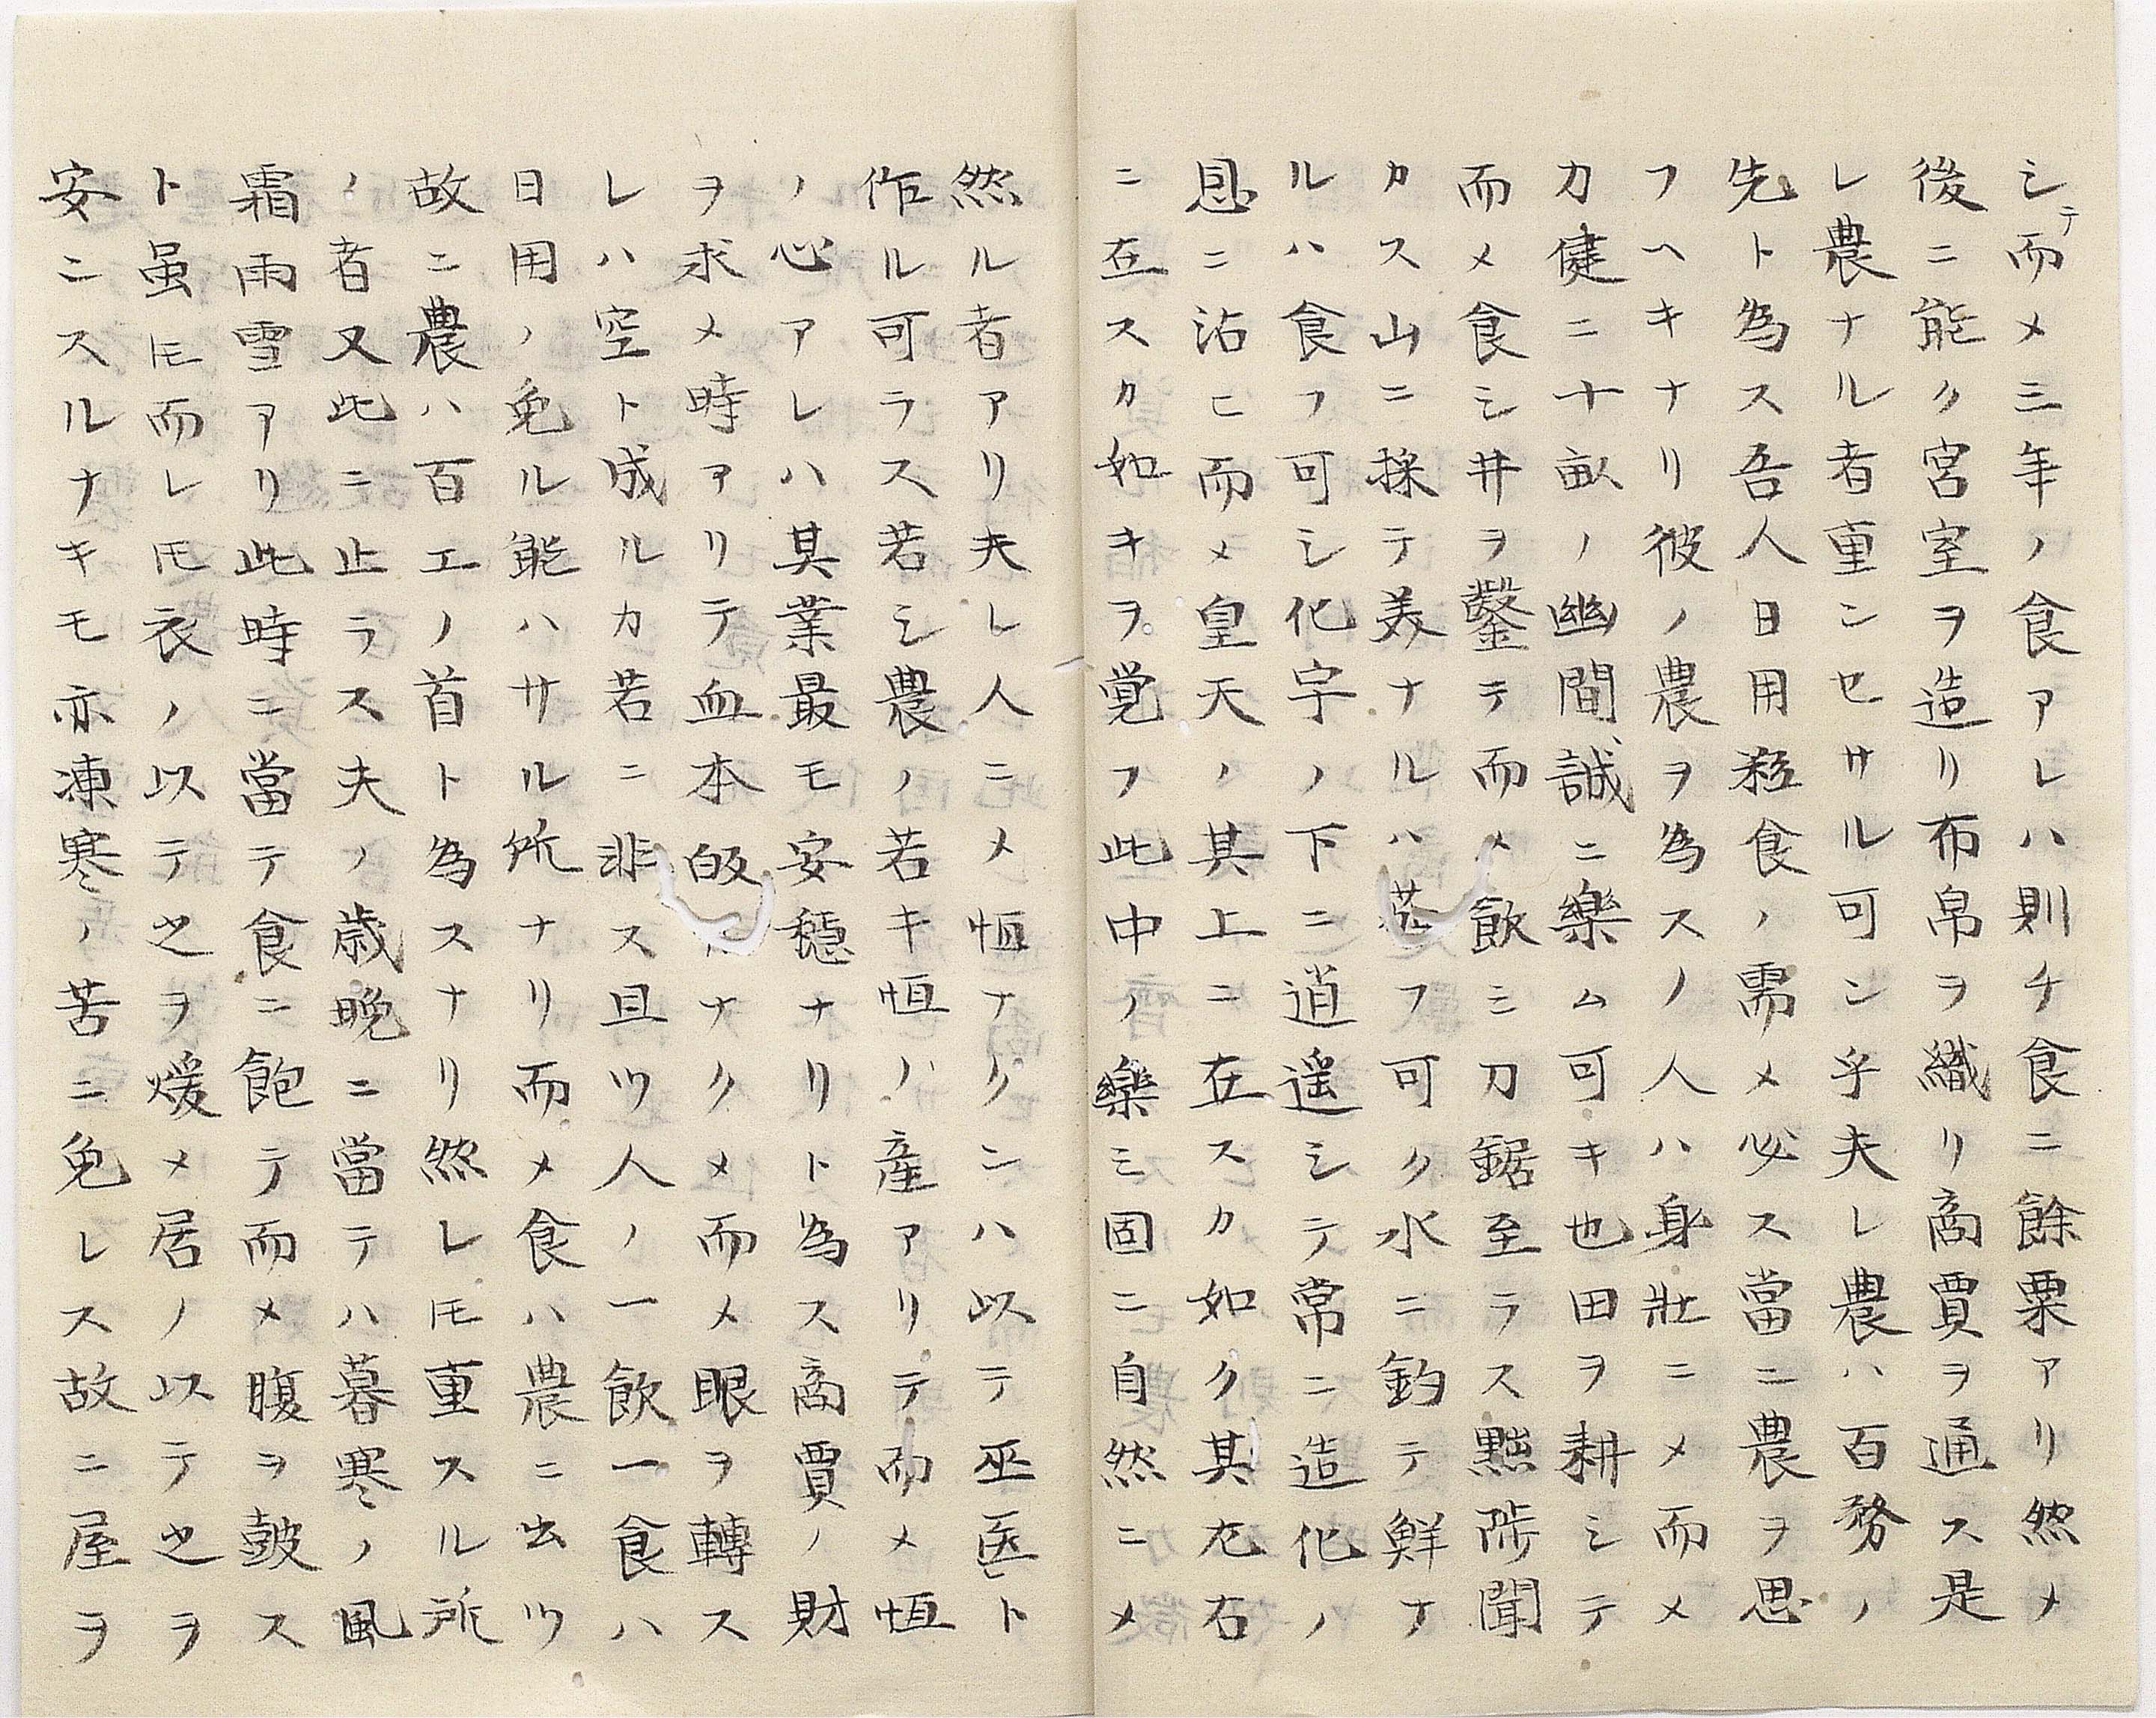 シテ而メ三年ノ食アレハ則チ食ニ餘粟アリ然メ
後ニ能ク宮室ヲ造リ布帛ヲ織リ商賈ヲ通ス是
レ農ナル者重ンセサル可ン乎夫レ農ハ百務ノ
先ト為ス吾人日用糓食ノ需メ必ス當ニ農ヲ思
フヘキナリ彼ノ農ヲ為スノ人ハ身壯ニメ而メ
力健ニ十畝ノ幽間誠ニ樂ム可キ也田ヲ耕シテ
而メ食シ井ヲ鑿テ而メ飲ミ刀鋸至ラス黜陟聞
カス山ニ採テ美ナルハ茹フ可ク水ニ釣テ鮮ナ
ルハ食フ可シ化宇ノ下ニ逍遥シテ常ニ造化ノ
恩ニ沾ヒ而メ皇天ノ其上ニ在スカ如ク其左右
ニ在スカ如キヲ覚フ此中ノ樂ミ固ニ自然ニメ
然ル者アリ夫レ人ニメ恒ナクンハ以テ巫医ト
作ル可ラス若シ農ノ若キ恒ノ産アリテ而メ恒
ノ心アレハ其業最モ安穏ナリト為ス商賈ノ財
ヲ求メ時アリテ血本的ナクメ而メ眼ヲ轉ス
レハ空ト成ルカ若ニ非ス且ツ人ノ一飲一食ハ
日用ノ免ル能ハサル所ナリ而メ食ハ農ニ出ツ
故ニ農ハ百工ノ首ト為スナリ然レ𪜈重スル所
ノ者又此ニ止ラス夫ノ歳晩ニ當テハ暮寒ノ風
霜雨雪アリ此時ニ當テ食ニ飽テ而メ腹ヲ皷ス
ト虽𪜈而レ𪜈衣ノ以テ之ヲ煖メ居ノ以テ之ヲ
安ニスルナキモ亦凍寒ノ苦ニ免レス故ニ屋ヲ